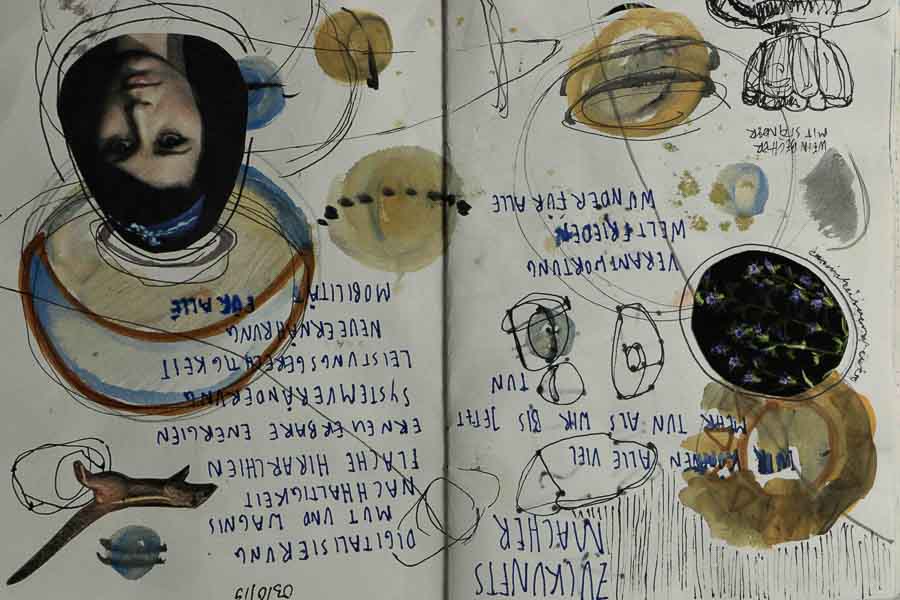 ZUKUNFTS
MACHER
WIR KÖNNEN ALLE VIEL
MEHR TUN ALS WIR BIS JETZT
TUN
VERANTWORTUNG
WELTFRIEDEN
WUNDER FÜR ALLE
WEINBECHER
MIT STÄNDER
DIGITALISIERUNG
MUT UND WAGNIS
NACHHALTIGKEIT
FLACHE HIRARCHIEN
ERNEUERBARE ENERGIEN
SYSTEMVERÄNDERUNG
LEISTUNGSGERECHTIGKEIT
NEUE ERNÄHRUNG
MOBILITÄT FÜR ALLE